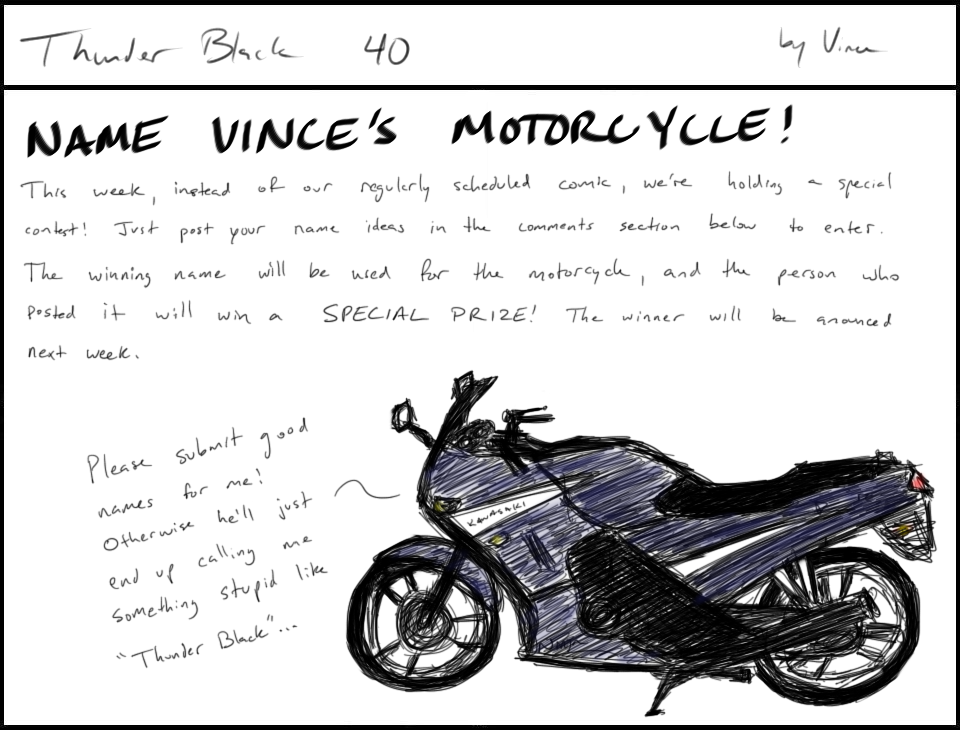 Thunder Black 40
by Vince
NAME VINCE'S MOTORCYCLE!
This week, instead of our regularly scheduled comic, we're holding a special
contest! Just post your name ideas in the comments section below to enter.
The winning name will be used for the motorcycle, and the person who
posted it will win a SPECIAL PRIZE! The winner will be anounced
next week.
Please submit good
names for me!
Otherwise he'll just
end up calling me
something stupid like
"Thunder Black"...
KAWASAKI
Ninja